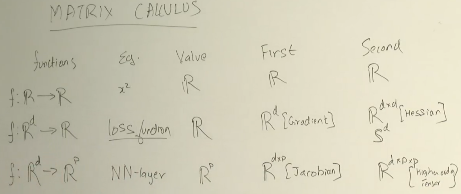 MATRIX CALCULUS
functions Eg. Value First Second
f: ℝ → ℝ x² ℝ ℝ ℝ
f: ℝᵈ → ℝ loss function ℝ ℝᵈ [Gradient] ℝᵈˣᵈ [Hessian]
Sᵈ
f: ℝᵈ → ℝᵖ NN-layer ℝᵖ ℝᵈˣᵖ [Jacobian] ℝᵈˣᵖˣᵖ [higher order
Tensor]